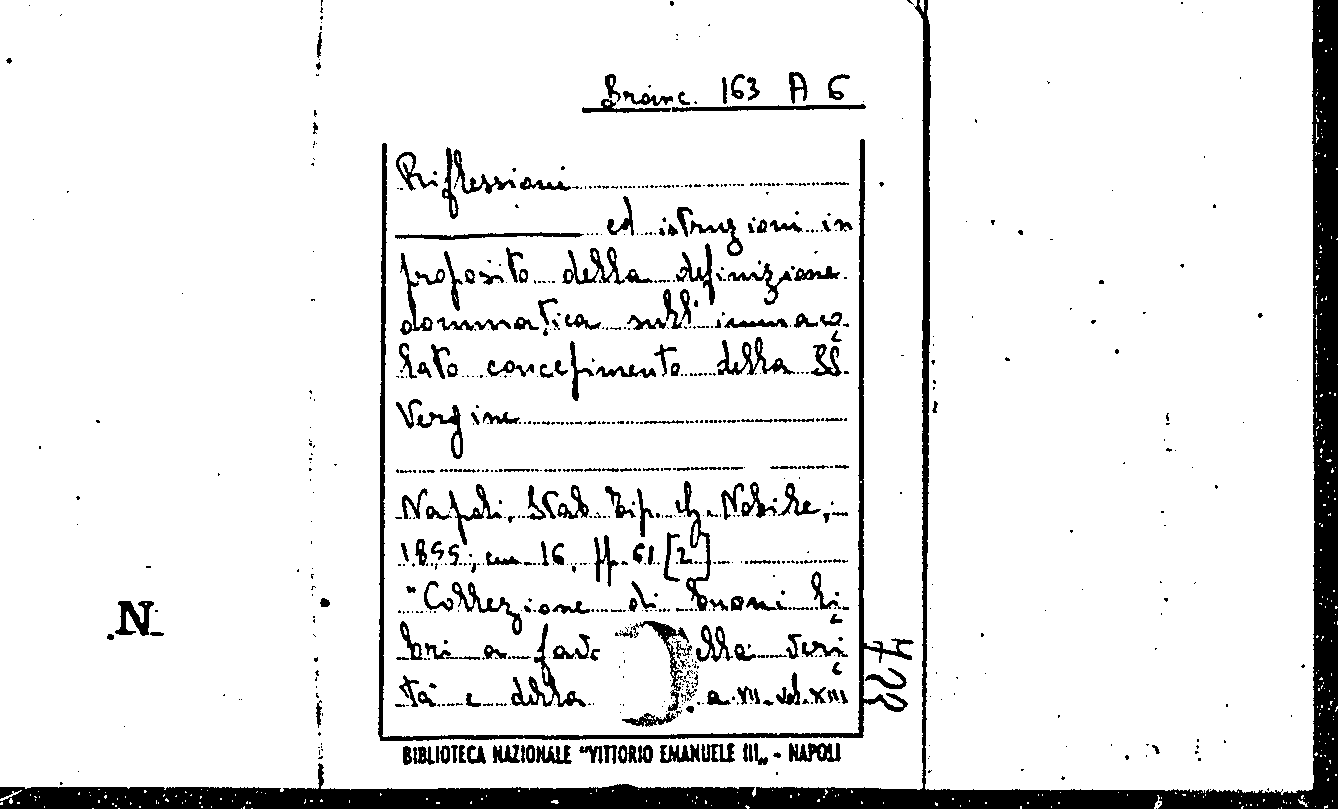 Branc. 163 A 6
Riflessioni
ed istruzioni in
proposito della definizione
dommatica sull'immaco
lato concepimento della SS.
Vergine
Napoli, Stab. Tip. G. Nobile,
1855; in 16, pp. 61 [2]
"Collezione di buoni li
bri a fav ella veri
tà e della a. VII. vol. XIII
BIBLIOTECA NAZIONALE "VITTORIO EMANUELE III„ - NAPOLI
N